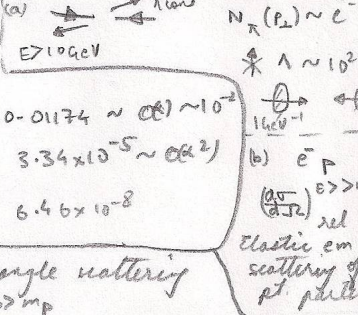 (a)
E>10GeV
N_π(P_⊥) ~ e^-
Λ ~ 10^2
1GeV^-1
0.01174 ~ O(α) ~10^-2
3.34x10^-5 ~ O(α^2)
6.46x10^-8
(b) e^- P
(dσ/dΩ) E>>
rel
Elastic em
scattering of
pt. parti
angle scattering
>> m_p